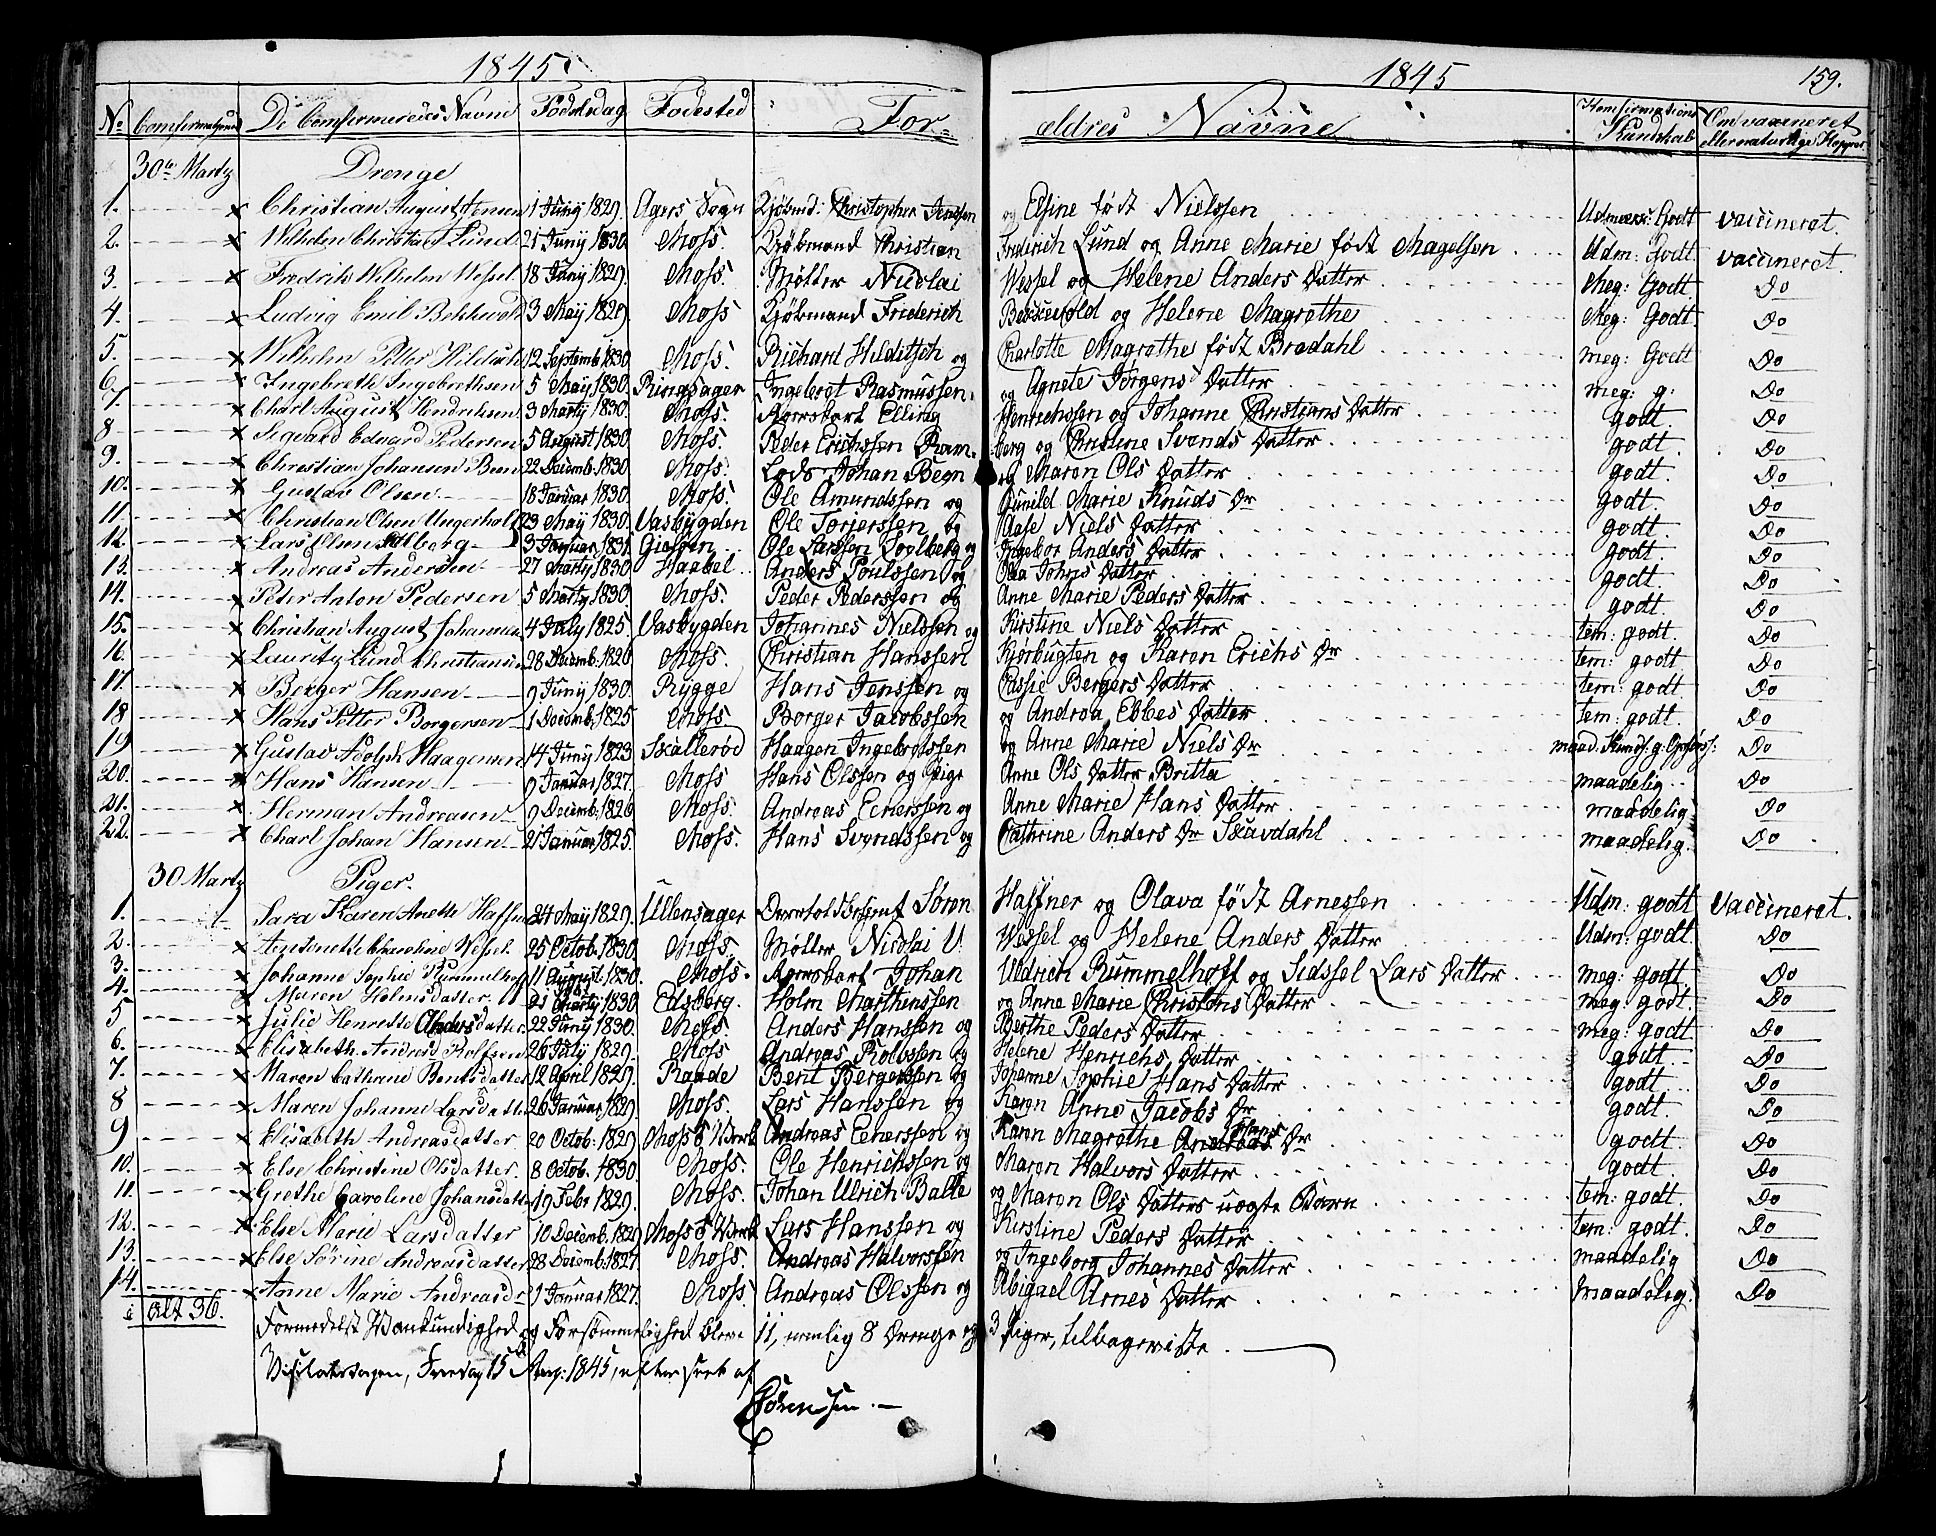 1845
1845
159.
No Comfirmations De Comfirmeredes Navne Fødelsdag Fødested For-
ældres Navne Konfirmations Kundskab Om vaxineret eller naturlige Kopper
30te Martz Drenge
1. Christian August Jensen 1 Juny 1829. Agers Sogn Kjøbmd: Christopher Jenssen og Elsine født Nielssen Udmærk: Godt vaccineret.
2. Wilhelm Christian Lund 21 Juny 1830. Moss. Kjøbmand Christian Frederich Lund og Anne Marie født Magelsen Udm: Godt. vaccineret.
3. Fredrik Wilhelm Wessel 18 Juny 1829. Moss. Møller Nicolai Wessel og Helene Anders Datter Meg: Godt. Do
4. Ludvig Emil Bekkevold 3 May 1829. Moss Kjøbmand Friderich Bekkevold og Helene Magrethe Meg: Godt. Do
5. Wilhelm Petter Hilditch 12 Septemb: 1830. Moss. Richard Hilditsch og Charlotte Magrethe født Bredahl meg: Godt Do
6. Ingebreth Ingebrethsen 5 May 1830. Ringsager Ingebregt Rasmussen og Agnete Jørgens Datter meg: g: Do
7. Charl August Hendriksen 3 Marty 1830. Moss. Elling Henrichssen og Johanne Christians Datter godt. Do
8 Sigvard Edvard Pedersen 5 August 1830. Moss. Peder Erichssen Dramberg og Christine Svends Datter godt. Do
9. Christian Johansen Been 22 Decemb. 1830. Moss. Lods Johan Begn og Maren Ols Datter godt. Do
10. Gustav Olsen 18 Januar 1830. Moss. Ole Amundssen og Gunild Marie Knuds Dr godt. Do
11. Christian Olsen Ungerholt 23 May 1830. Vasbygden Ole Torjerssen og Aase Niels Datter godt. Do
12. Lars Olsen Solberg 3 Januar 1831. Ole Larssen Soelberg og Ingebor Anders Datter godt. Do
13. Andreas Andersen 27 Marty 1830 Haabel Anders Poulssen og Olea Johns Datter godt. Do
14. Peter Anton Pedersen 5 Marty 1830. Moss. Peder Pederssen og Anne Marie Peders Datter godt. Do
15. Christian August Johansen 4 July 1825. Vasbygden Johannes Nielssen og Kirstine Niels Datter tem: godt. Do
16. Lauritz Lund Christiansen 28 Decemb: 1826 Moss. Christian Hanssen Kjørbugten og Karen Erichs Dr tem: godt. Do
17. Berger Hansen 9 Juny 1830. Rygge Hans Jenssen og Cassie Bergers Datter tem: godt. Do
18 Hans Petter Borgersen 1 Decemb. 1825 Moss Borger Jacobssen og Andrea Ebbes Datter tem: godt. Do
19 Gustav Adolph Haagensen 14 Juny 1823 Skallerød Haagen Ingebretssen og Anne Marie Niels Dr maad: Kundsk: g: Do
20. Hans Hansen 9 Januar 1827. Moss Hans Olssen og Pige Anne Ols Datter Britta maadelig Do
21. Herman Andreasen 9 Decemb. 1826. Moss. Andreas Eenerssen og Anne Marie Hans Datter maadelig Do
22. Charl Johan Hansen 21 Januar 1825. Moss. Hans Svendssen og Cathrine Anders Dr Skavdahl maadelig. Do
30 Martz Piger.
1. Sara Karen Anette Haffner 24 May 1829. Ullensager Søren Haffner og Olava født Arnessen Udm: godt vaccineret.
2. Antonette Charoline Wessel. 25 Octob. 1830. Moss. Møller Nicolai U. Wessel og Helene Anders Datter Udm: godt. Do
3. Johanne Sophie Rummelhoff 11 August 1830. Moss. Johan Uldrich Rummelhoff og Sidssel Lars Datter meg: godt Do
4. Maren Holmsdatter. 21 Marty 1830. Edsberg. Holm Marthinssen og Anne Marie Christens Datter meg: godt. Do
5 Julie Henrette Andersdatter 22 Juny 1830. Moss. Anders Hanssen og Berthe Peders Datter meg: godt Do
6. Elisabeth Andrea Rolfsen 26 July 1829. Moss Andreas Rolvssen og Helene Henrichs Datter godt Do
7. Maren Cathrine Bentsdatter 12 April 1829. Raade Bent Bergerssen og Johanne Sophie Hans Datter godt. Do
8 Maren Johanne Larsdatter 26 Januar 1829. Moss. Lars Hanssen og Karen Anne Jacobs Dr godt. Do
9 Elisabeth Andreasdatter 20 Octob: 1829 Moss Værk Andreas Eenerssen og Karen Magrethe Andreas Dr godt. Do
10. Else Christine Olsdatter. 8 Octob. 1830. Moss. Ole Henrichssen og Maren Halvors Datter godt. Do
11. Grethe Caroline Johansdatter 19 Febr 1829. Moss. Johan Ulrich Balle og Maren Ols Datters uægte Barn tem: godt. Do
12. Else Marie Larsdatter 10 Decemb. 1829 Moss Værk Lars Hanssen og Kirstine Peders Datter tem: godt. Do
13. Else Sørine Andreasdatter 28 Decemb. 1827. Moss. Andreas Halvorssen og Ingeborg Johannes Datter maadelig Do
14. Anne Marie Andreasdr 9 Januar 1827. Moss. Andreas Olssen og Abigael Arnes Datter maadelig. Do
i alt 36.
Formedelst Vankundighed og Forsømmelighed bleve 11, nemlig 8 Drenge og 3 Piger, tilbageviste.
15 1845, af
Sørenssen.